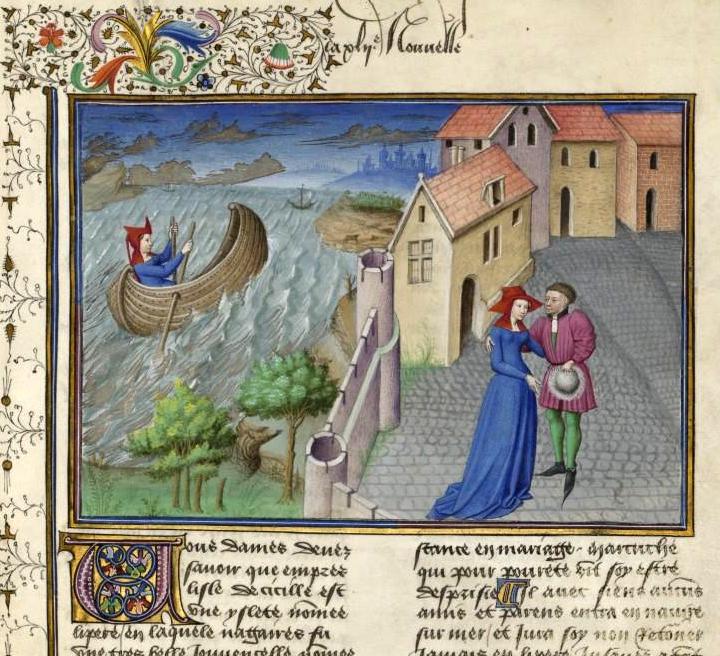 la plij.e Nouvelle
Vous dames devez
savoir que emprez
lisle de cicille est
vne yslete nomee
lipere en laquele nagaires fu
vne tres belle Jouvencelle nomee
stance en mariage. martuche
qui pour povrete vit soy estre
desprisie Il avec siens autres
amis et parens entra en navire
sur mer et Jura soy non retourner
Jamais en lipere Jusques